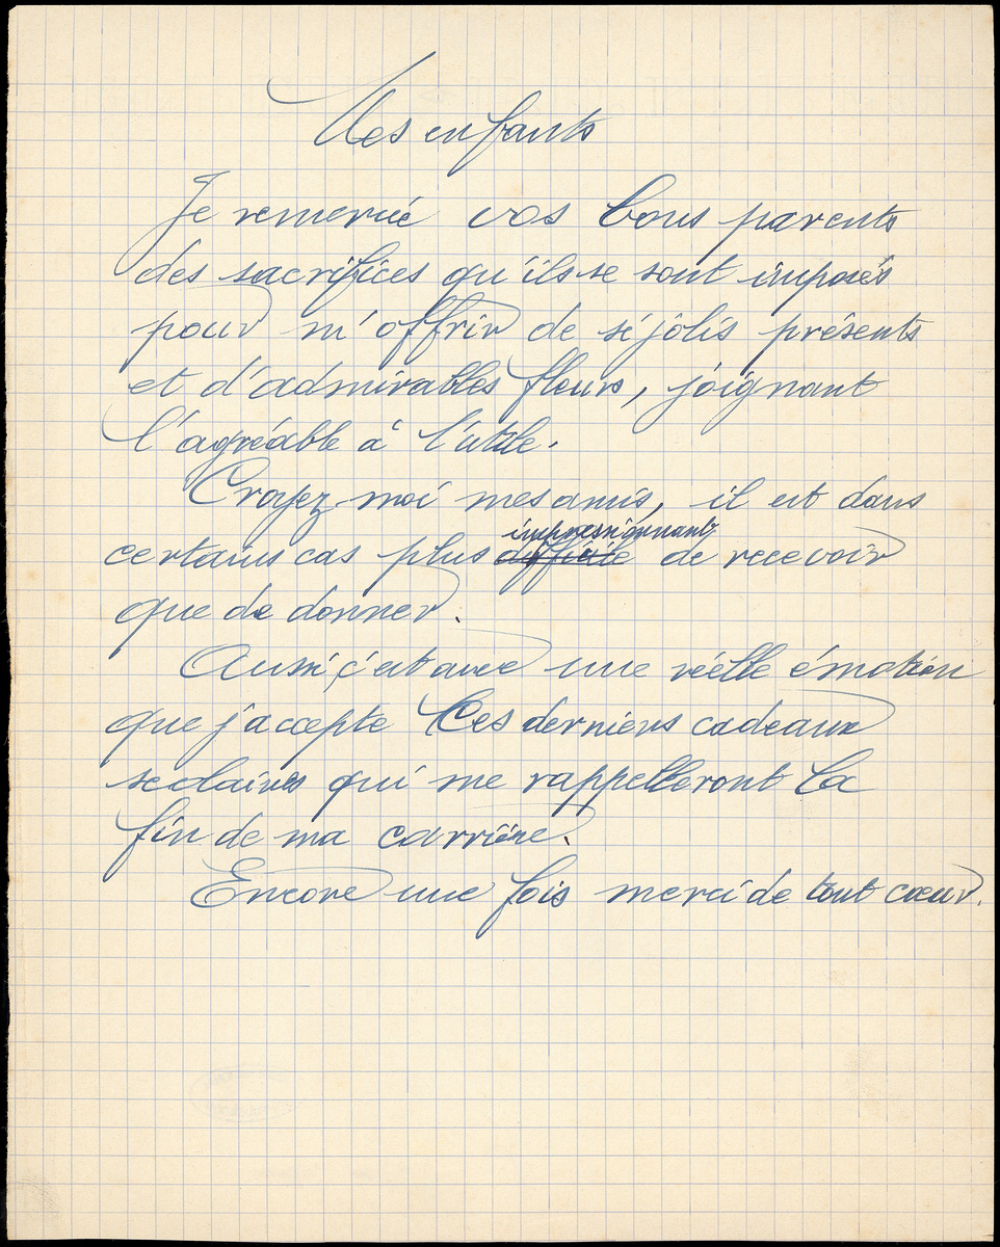 Mes enfants
Je remercie vos bons parents
des sacrifices qu'ils se sont imposés
pour m'offrir de si jolis présents
et d'admirables fleurs, joignant
l'agréable à l'utile.
Croyez moi mes amis, il est dans
impressionnant
certains cas plus difficile de recevoir
que de donner.
Aussi c'est avec une réelle émotion
que j'accepte ces derniers cadeaux
scolaires qui me rappelleront la
fin de ma carrière.
Encore une fois merci de tout cœur.